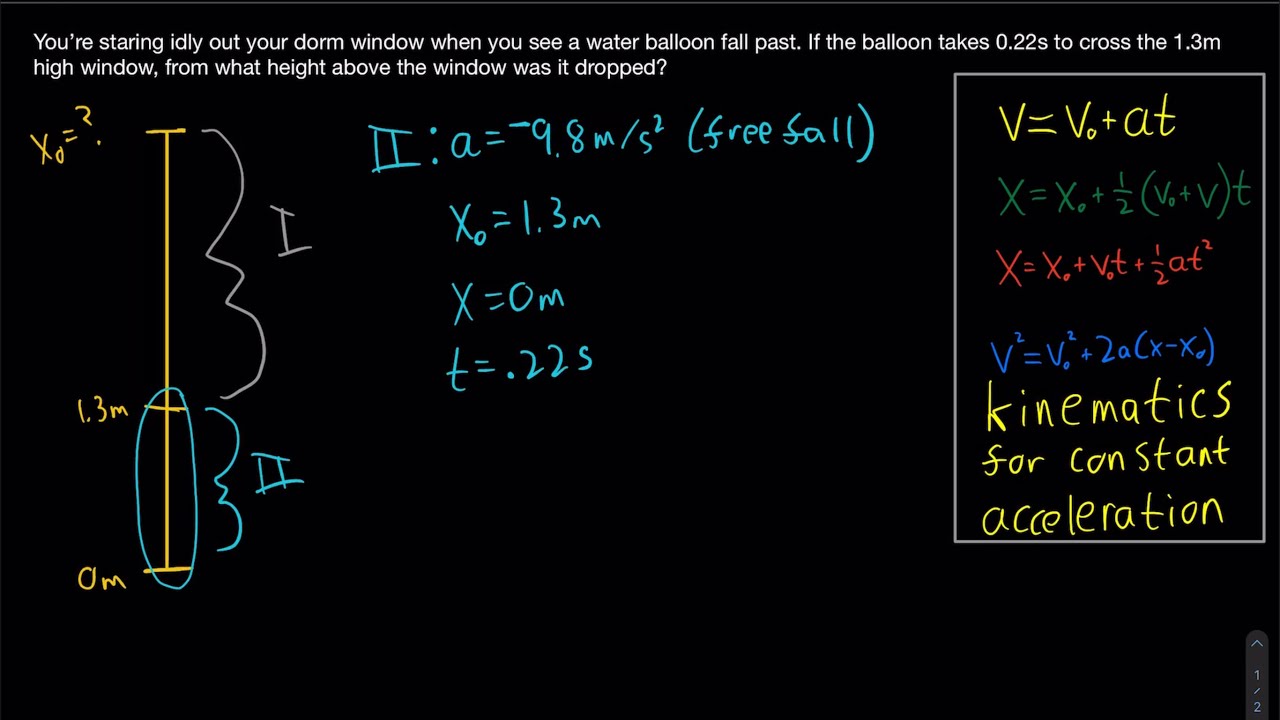 You're staring idly out your dorm window when you see a water balloon fall past. If the balloon takes 0.22s to cross the 1.3m
high window, from what height above the window was it dropped?
X₀=?
I
1.3m
II
0m
II: a=-9.8m/s² (free fall)
X₀=1.3m
X=0m
t=.22s
V=V₀+at
X=X₀+½(V₀+V)t
X=X₀+V₀t+½at²
V²=V₀²+2a(x-x₀)
kinematics
for constant
acceleration
1
/
2